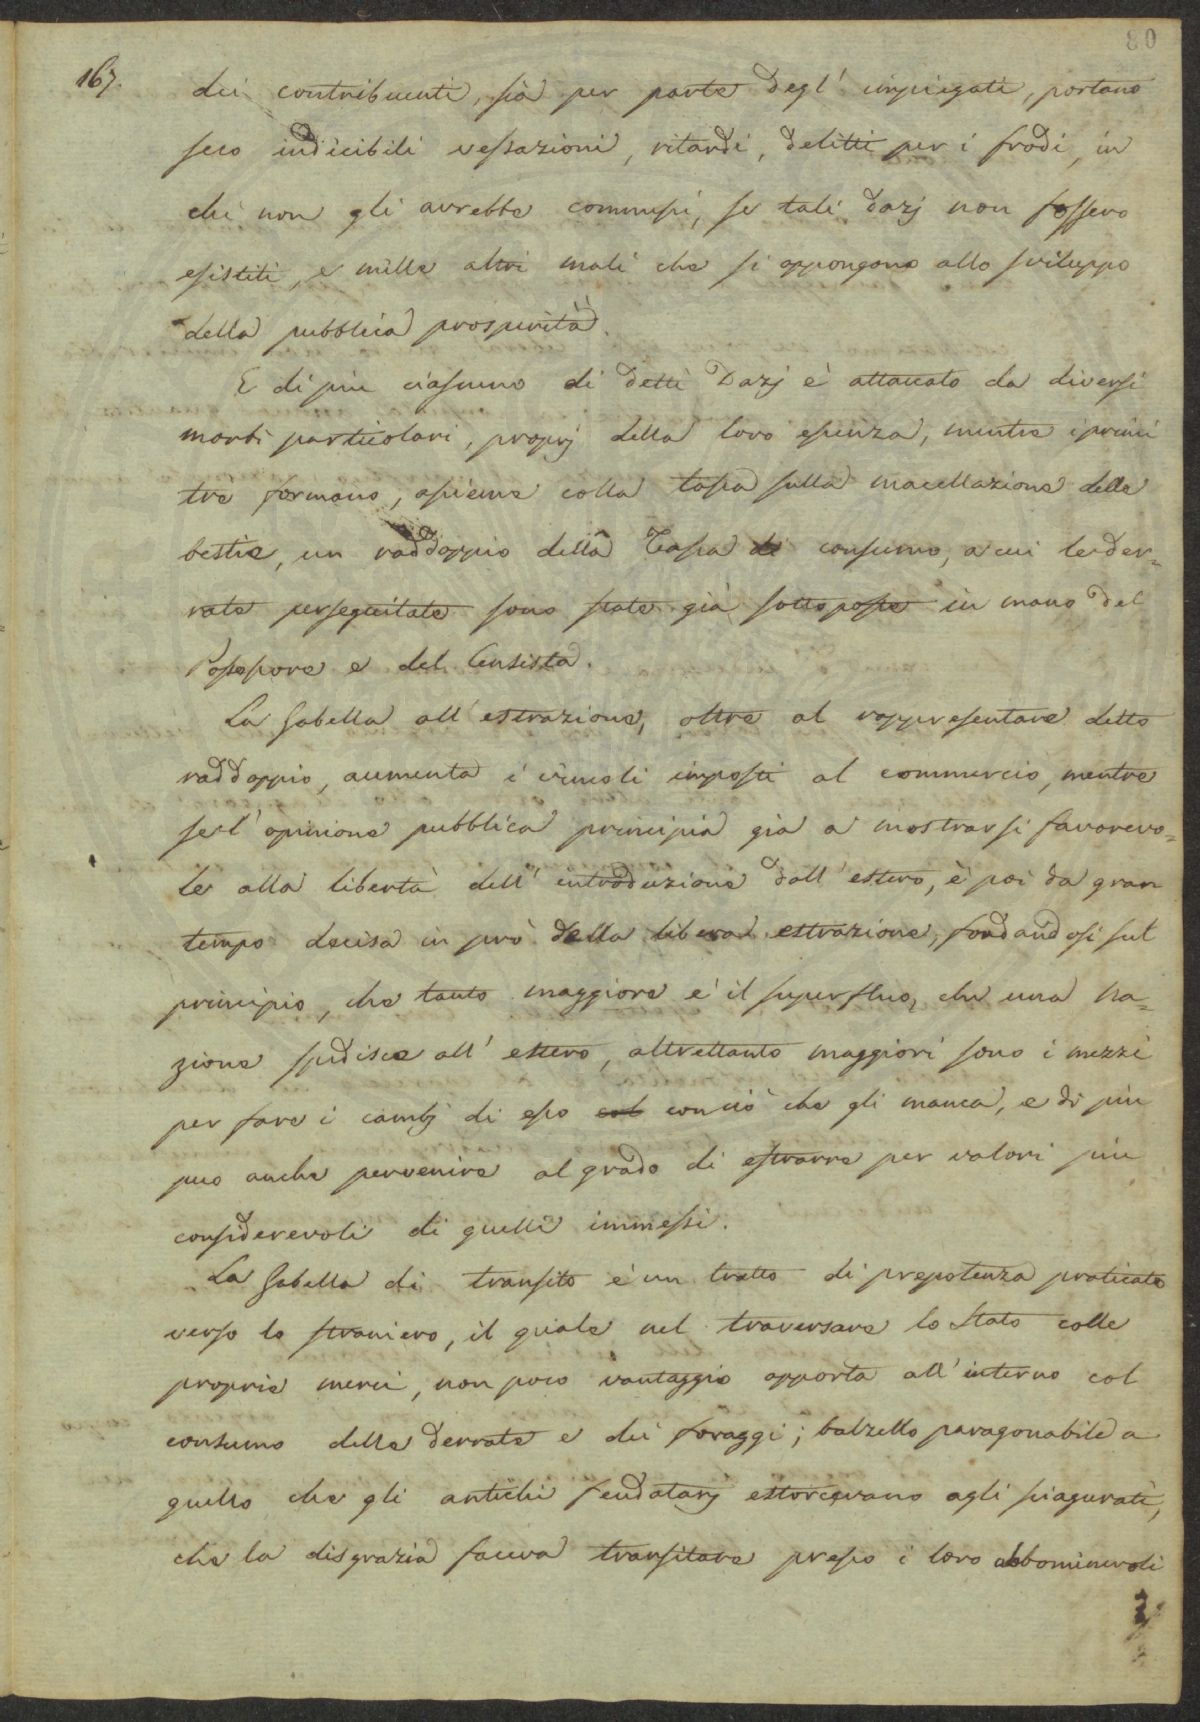 80
167.
dei contribuenti, sia per parte degl' impiegati, portano
seco indicibili vessazioni, ritardi, delitti per i frodi, in
chi non gli avrebbe commessi, se tali dazj non fossero
esistiti, e mille altri mali che si oppongono allo sviluppo
della pubblica prosperità.
E di più ciascuno di detti Dazj è attaccato da diversi
morbi particolari, proprj della loro essenza, mentre i primi
tre formano, assieme colla tassa sulla macellazione delle
bestie, un raddoppio della Tassa di consumo, a cui le der=
rate perseguitate sono state già sottoposte in mano del
Possessore e del Censista.
La Gabella all' estrazione, oltre al rappresentare detto
raddoppio, aumenta i vincoli imposti al commercio, mentre
se l' opinione pubblica principia già a mostrarsi favorevo=
le alla libertà dell' introduzione dall' estero, è poi da gran
tempo decisa in prò della libera estrazione, fondandosi sul
principio, che tanto maggiore e' il superfluo, che una Na=
zione spedisce all' estero, altrettanto maggiori sono i mezzi
per fare i cambj di esso con ciò che gli manca, e di più
può anche pervenire al grado di estrarre per valori più
considerevoli di quelli immessi.
La Gabella di transito è un tratto di prepotenza praticato
verso lo straniero, il quale nel traversare lo Stato colle
proprie merci, non poco vantaggio apporta all' interno col
consumo delle derrate e dei foraggi; balzello paragonabile a
quello che gli antichi feudatarj estorcevano agli sciagurati,
che la disgrazia faceva transitare presso i loro abbominevoli